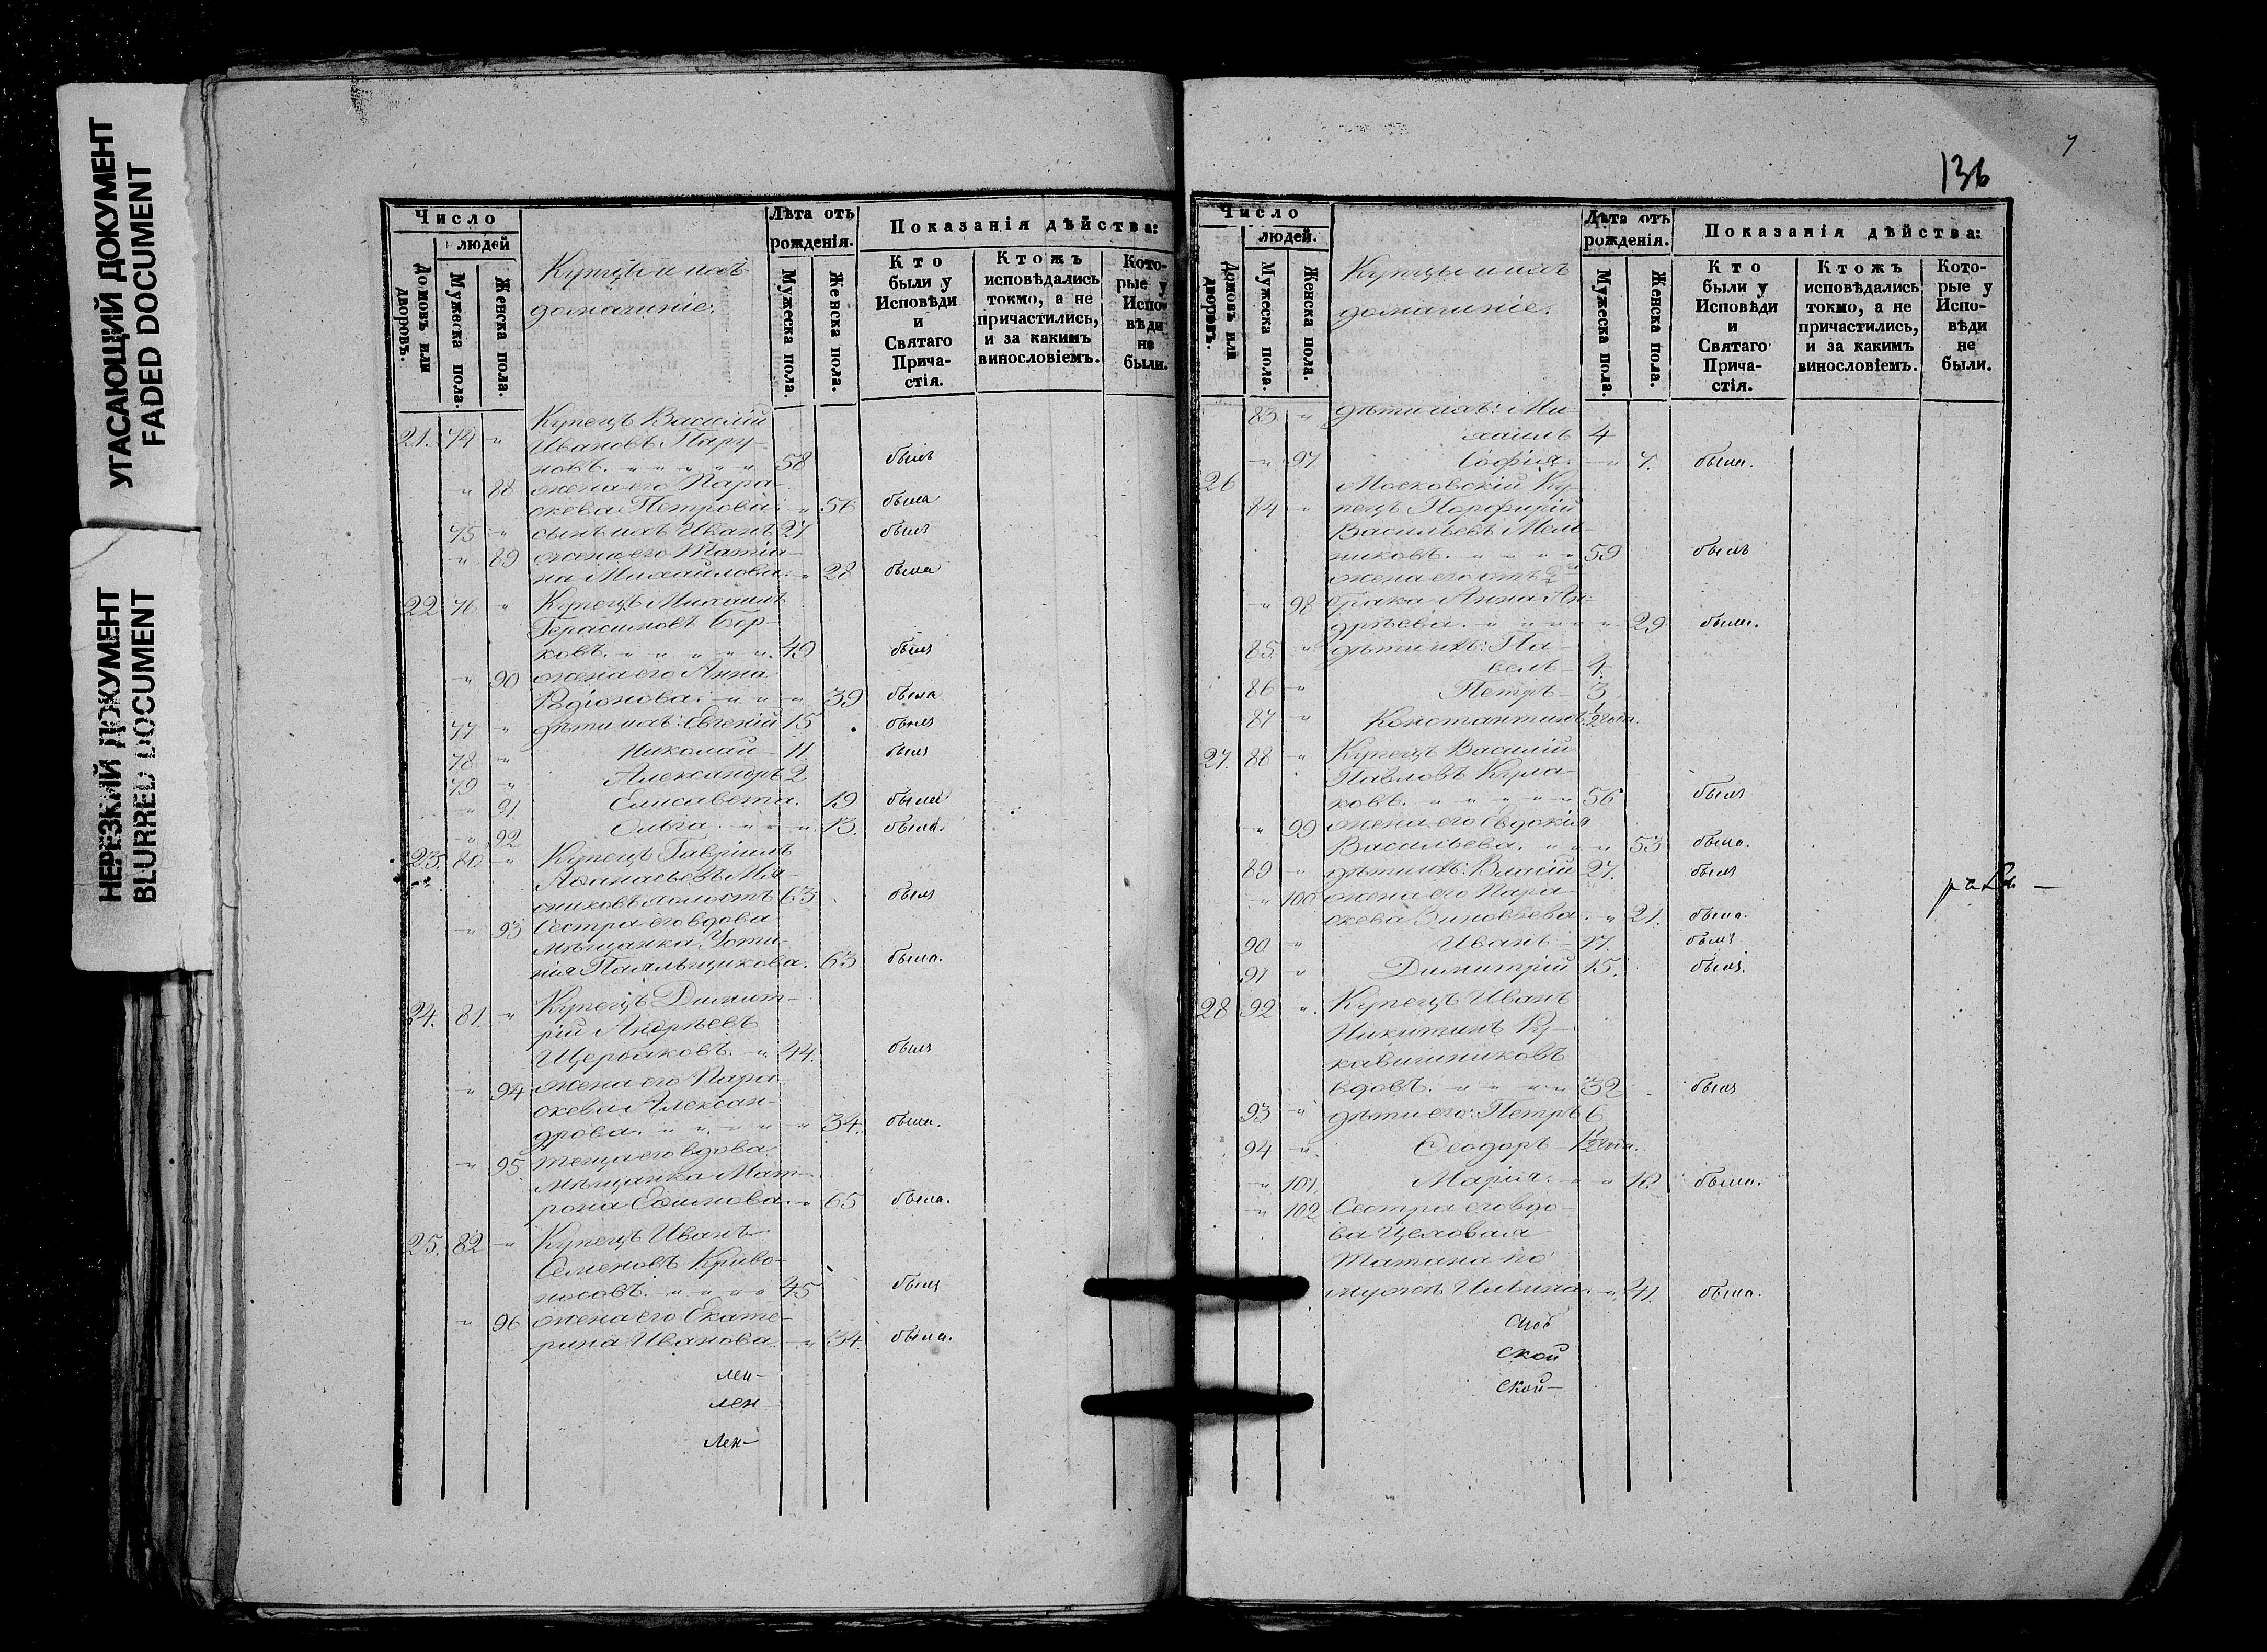 УГАСАЮЩИЙ ДОКУМЕНТ
FADED DOCUMENT
НЕРЕЗКИЙ ДОКУМЕНТ
BLURRED DOCUMENT
Число
людей
Домовъ или дворовъ.
Мужеска пола.
Женска пола.
Купцы и ихъ
домашніе.
Лѣта отъ
рожденія.
Мужеска пола.
Женска пола.
Показанія дѣйства:
Кто
были у
Исповѣди
и
Святаго
Прича-
стія.
Ктожъ
исповѣдались
токмо, а не
причастились,
и за какимъ
винословіемъ.
Кото-
рые у
Испо-
вѣди
не
были.
Купецъ Василій
21. 74 " Ивановъ Пару-
новъ. " " " " " 58 былъ
" 88 жена его Пара-
скева Петрова. " 56 была
75 " сынъ ихъ Иванъ 27 былъ
" 89 жена его Татіа-
на Михайлова. " 28 была
22 76 " Купецъ Михаилъ
Герасимовъ Бор-
ковъ. " " " " " 49 былъ
" 90 жена его Анна
Родіонова. " " " 39 была
77 " дѣти ихъ: Евгеній 15 былъ
78 " Николай 11 былъ
79 " Александръ 2
" 91 Елисавета. 19 была
" 92 Ольга. " " " 13. была.
23. 80 " Купецъ Гавріилъ
Аѳанасьевъ Мя-
сниковъ холостъ 63 былъ
" 93 Сестра его вдова
Мѣщанка Усти-
нія Паяльщикова. 63 была.
24. 81. " Купецъ Димит-
рій Андреевъ
Щербаковъ. " 44. былъ
" 94 жена его Пара-
скева Алексан-
дрова. " " " " " 34. была.
" 95 теща его вдова
Мѣщанка Мат-
рона Ефимова. " 65 была.
25. 82 " Купецъ Иванъ
Семеновъ Криво-
носовъ. " " " " 45 былъ
" 96 жена его Екате-
рина Иванова. " 34. была.
лен-
лен
лен-
136
7
Число
людей.
Домовъ или дворовъ.
Мужеска пола.
Женска пола.
Купцы и ихъ
домашніе.
Лѣта отъ
рожденія.
Мужеска пола.
Женска пола.
Показанія дѣйства:
Кто
были у
Исповѣди
и
Святаго
Прича-
стія.
Ктожъ
исповѣдались
токмо, а не
причастились,
и за какимъ
винословіемъ.
Кото-
рые у
Испо-
вѣди
не
были.
83. " дѣти ихъ: Ми-
хаилъ 4
" 97 Софія. " 7. была.
26 Московскій Ку-
84 " пецъ Порфирій
Васильевъ Мель-
никовъ. " " " " 59 былъ
жена его отъ 2го
" 98 брака Анна Ан-
дреева. " " " " " 29 была.
85. " дѣти ихъ: Па-
велъ 4.
86 " Петръ 3
87 " Константинъ 1/2 года.
27. 88 " Купецъ Василій
Павловъ Кула-
ковъ. " " " " " 56 былъ
" 99 жена его Евдокія
Васильева. " " " 53 была.
89 " дѣти ихъ: Власій 27. былъ
" 100 жена его Пара-
скева Зиновьева. " 21. была.
90 " Иванъ 17. былъ
91 " Димитрій 15. былъ.
28 92 " Купецъ Иванъ
Никитинъ Ру-
кавишниковъ
вдовъ. " " " " " 32 былъ
93 " дѣти его: Петръ 6
94 " Ѳеодоръ 1 1/2 года.
" 101. Марія. " " 12 была.
" 102 Сестра его вдо-
ва Цеховая
Татіана по
мужѣ Ильина. " 41. была.
ской
ской-